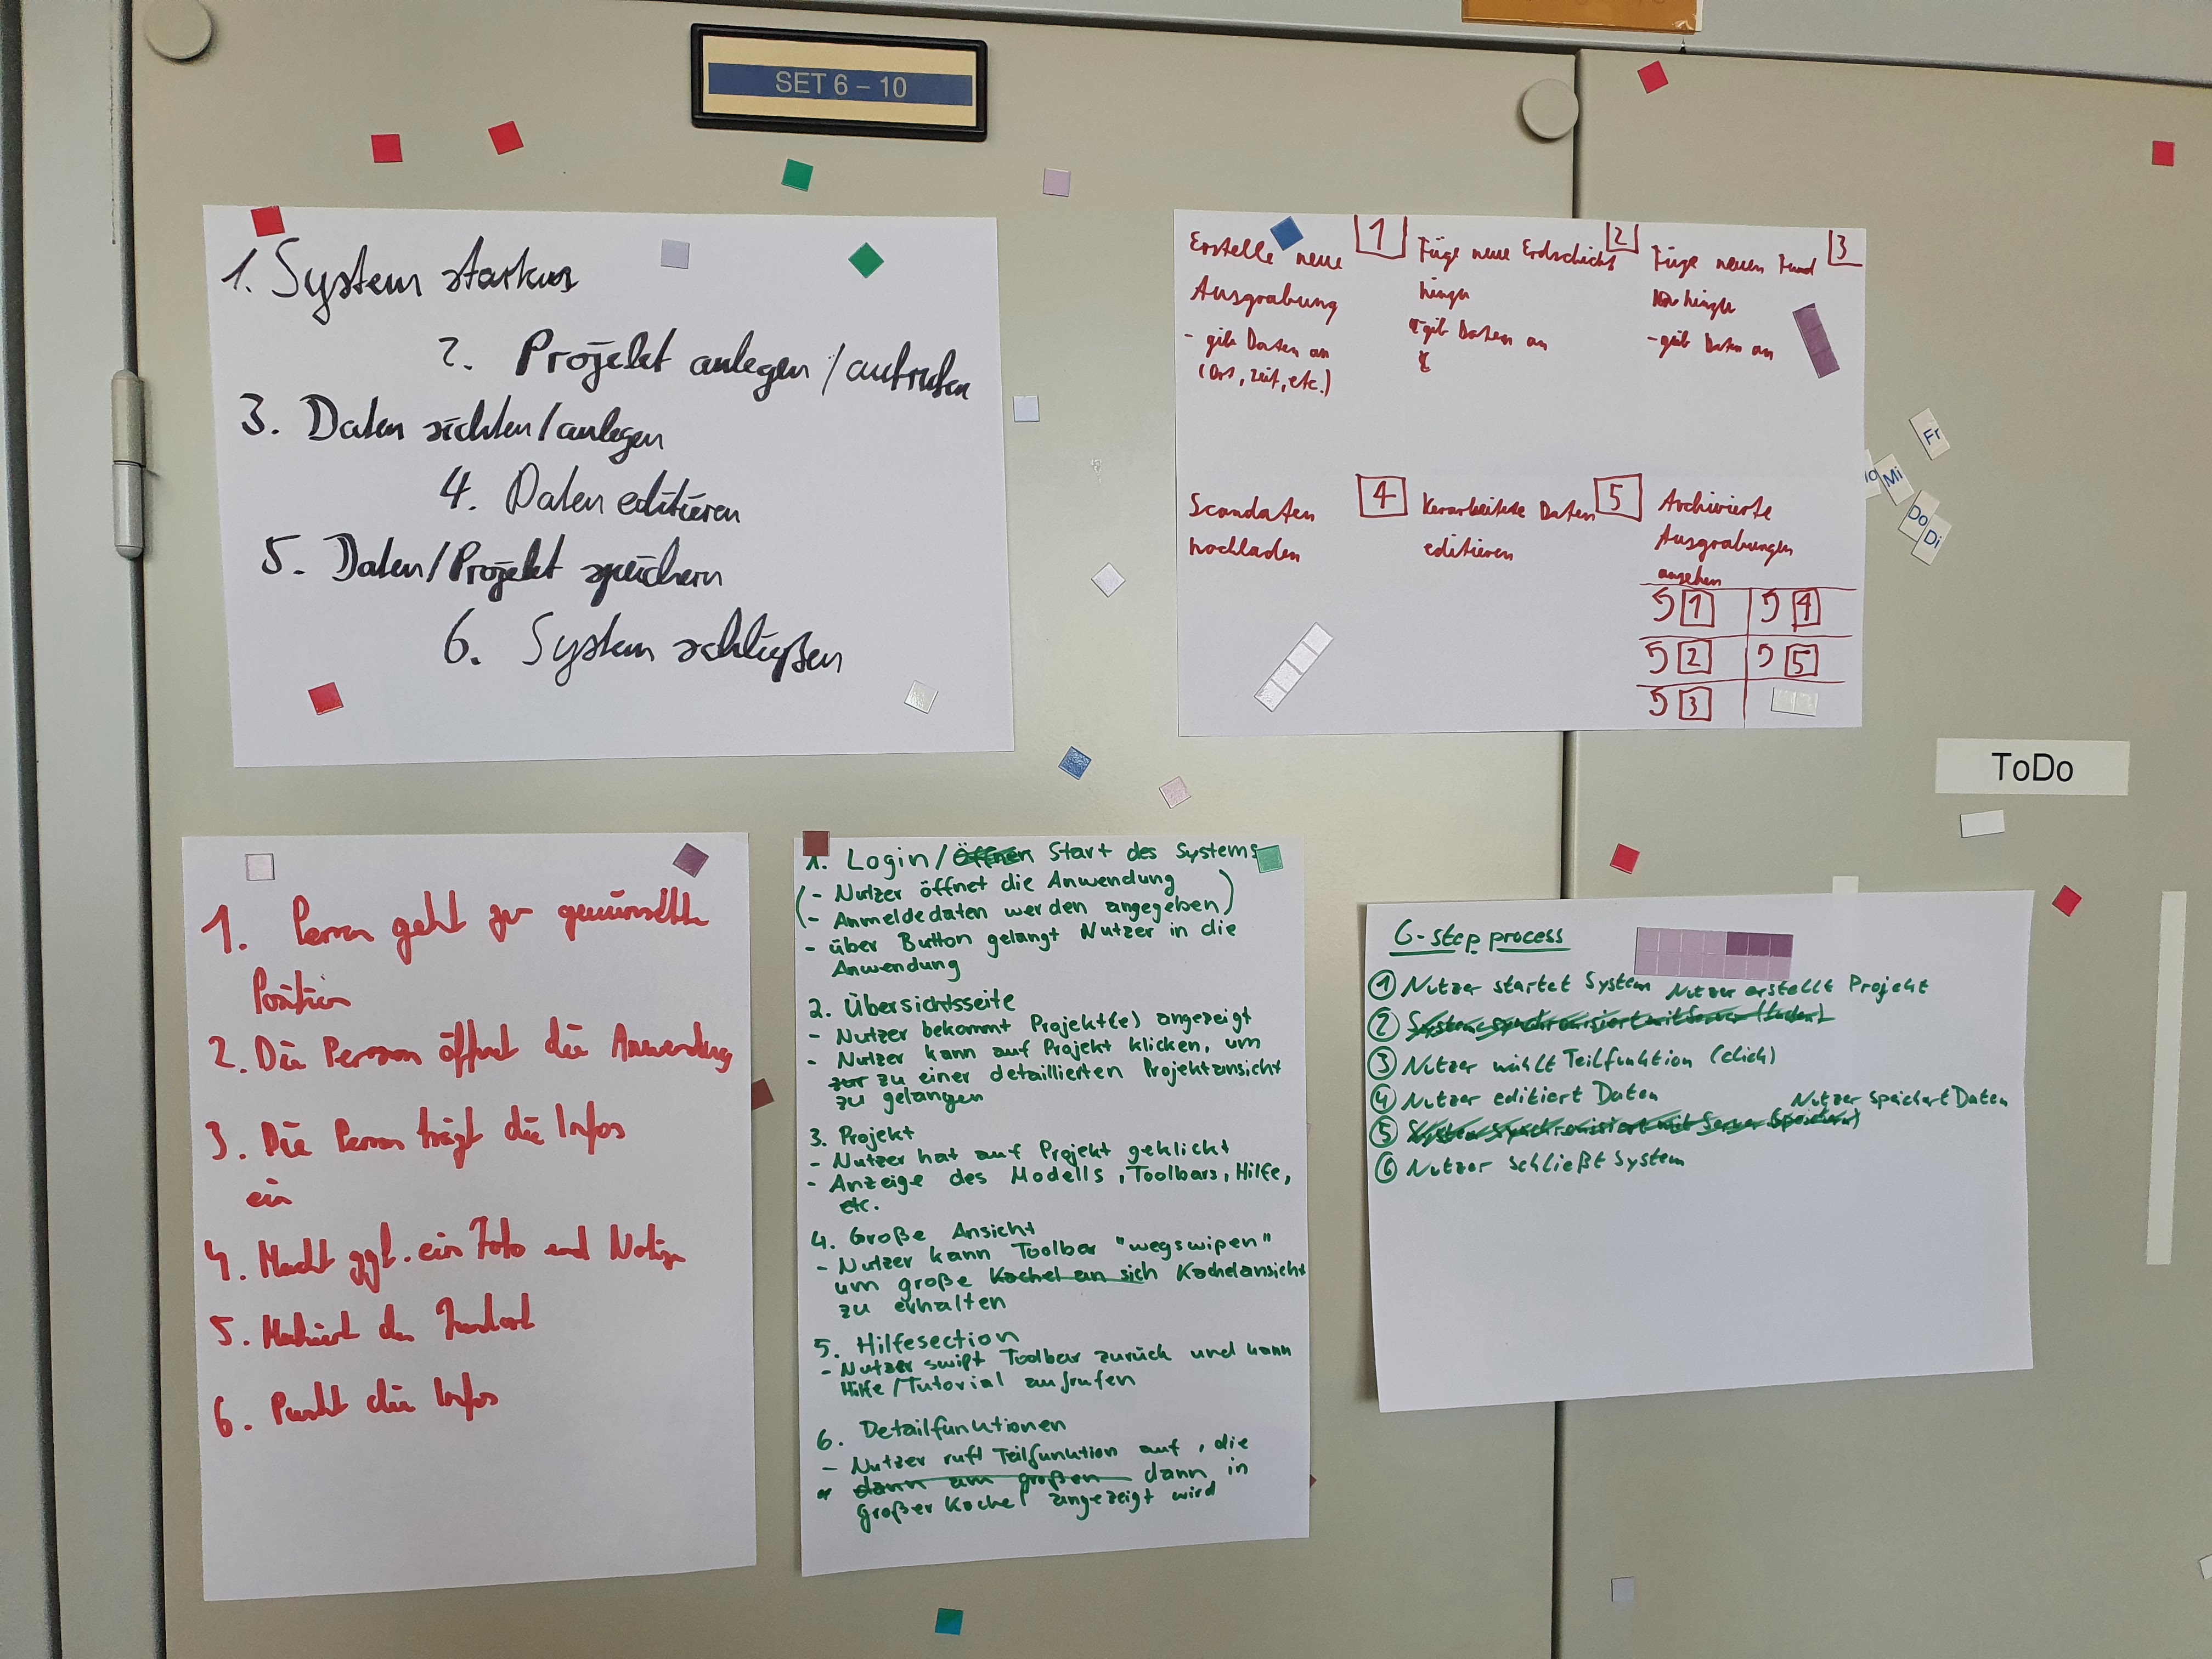 SET 6 – 10
1. System starten
2. Projekt anlegen / aufrufen
3. Daten sichten/anlegen
4. Daten editieren
5. Daten/Projekt speichern
6. System schließen
Erstelle neue
Ausgrabung
- gib Daten an
(Ort, Zeit, etc.)
1
Füge neue Erdschicht
hinzu
- gib Daten an
2
Füge neuen Fund
hinzu
- gib Daten an
3
Scandaten
hochladen
4
Verarbeitete Daten
editieren
5
Archivierte
Ausgrabungen
ansehen
1 4
2 5
3
Fr
Mi
Do
Di
ToDo
1. Person geht zur gewünschten
Position
2. Die Person öffnet die Anwendung
3. Die Person trägt die Infos
ein
4. Macht ggf. ein Foto und Notizen
5. Markiert den Fundort
6. Pusht die Infos
1. Login/Öffnen Start des Systems
(- Nutzer öffnet die Anwendung
- Anmeldedaten werden angegeben)
- über Button gelangt Nutzer in die
Anwendung
2. Übersichtsseite
- Nutzer bekommt Projekt(e) angezeigt
- Nutzer kann auf Projekt klicken, um
zur zu einer detaillierten Projektansicht
zu gelangen
3. Projekt
- Nutzer hat auf Projekt geklickt
- Anzeige des Modells, Toolbars, Hilfe,
etc.
4. Große Ansicht
- Nutzer kann Toolbar "wegswipen"
um große Kachel an sich Kachelansicht
zu erhalten
5. Hilfesection
- Nutzer swipt Toolbar zurück und kann
Hilfe/Tutorial aufrufen
6. Detailfunktionen
- Nutzer ruft Teilfunktion auf, die
dann am großen dann in
großer Kachel angezeigt wird
6-step process
1 Nutzer startet System
Nutzer erstellt Projekt
2 System synchronisiert mit Server (laden)
3 Nutzer wählt Teilfunktion (click)
4 Nutzer editiert Daten
Nutzer speichert Daten
5 System synchronisiert mit Server (speichern)
6 Nutzer schließt System